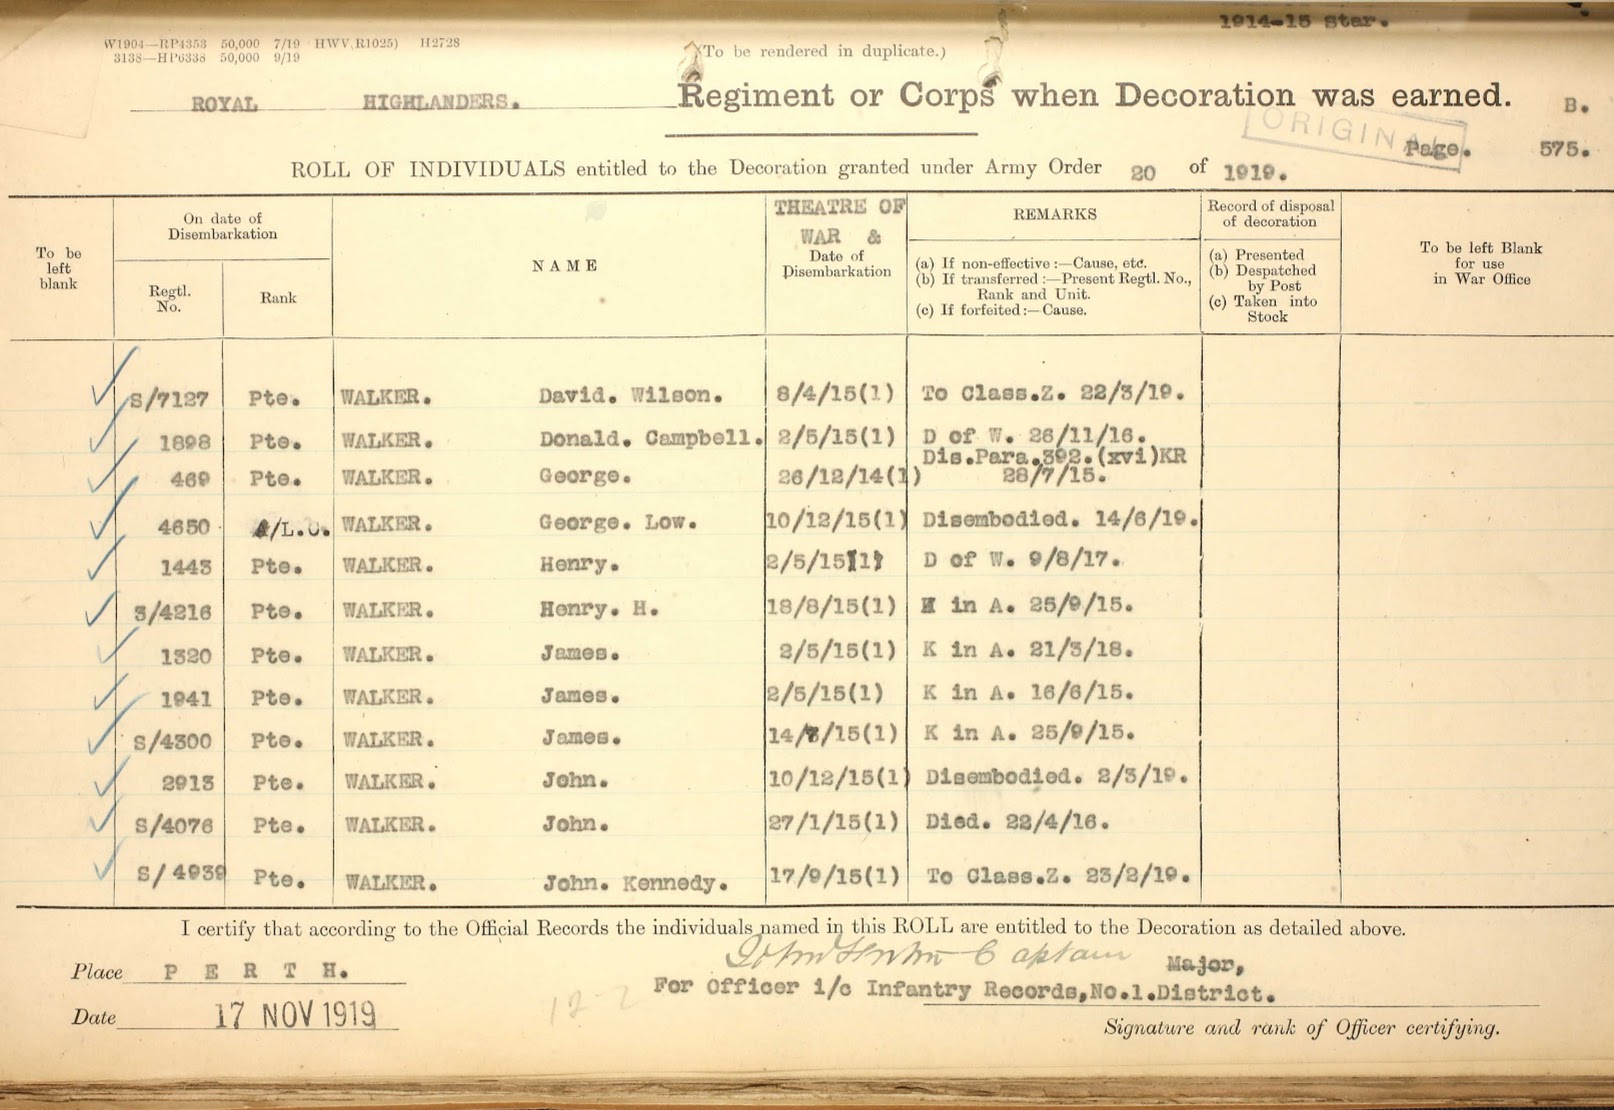 1914-15 Star.
W1904—RP4353 50,000 7/19 HWV(R1025) H2728
3138—HP6338 50,000 9/19
(To be rendered in duplicate.)
ROYAL HIGHLANDERS. Regiment or Corps when Decoration was earned. B.
ORIGINAL
Page. 575.
ROLL OF INDIVIDUALS entitled to the Decoration granted under Army Order 20 of 1919.
To be left blank
On date of Disembarkation
Regtl. No.
Rank
NAME
THEATRE OF WAR & Date of Disembarkation
REMARKS
(a) If non-effective :—Cause, etc.
(b) If transferred :—Present Regtl. No., Rank and Unit.
(c) If forfeited :—Cause.
Record of disposal of decoration
(a) Presented
(b) Despatched by Post
(c) Taken into Stock
To be left Blank for use in War Office
S/7127 Pte. WALKER. David. Wilson. 8/4/15(1) To Class.Z. 22/3/19.
1898 Pte. WALKER. Donald. Campbell. 2/5/15(1) D of W. 26/11/16.
469 Pte. WALKER. George. 26/12/14(1) Dis.Para.392.(xvi)KR 28/7/15.
4650 A/L.C. WALKER. George. Low. 10/12/15(1) Disembodied. 14/6/19.
1443 Pte. WALKER. Henry. 2/5/15(1) D of W. 9/8/17.
3/4216 Pte. WALKER. Henry. H. 18/8/15(1) K in A. 25/9/15.
1320 Pte. WALKER. James. 2/5/15(1) K in A. 21/3/18.
1941 Pte. WALKER. James. 2/5/15(1) K in A. 16/6/15.
S/4300 Pte. WALKER. James. K in A. 25/9/15.
2913 Pte. WALKER. John. 10/12/15(1) Disembodied. 2/3/19.
S/4076 Pte. WALKER. John. 27/1/15(1) Died. 22/4/16.
S/4939 Pte. WALKER. John. Kennedy. 17/9/15(1) To Class.Z. 23/2/19.
I certify that according to the Official Records the individuals named in this ROLL are entitled to the Decoration as detailed above.
Captain Major,
Place PERTH.
For Officer i/c Infantry Records,No.1.District.
Date 17 NOV 1919
Signature and rank of Officer certifying.